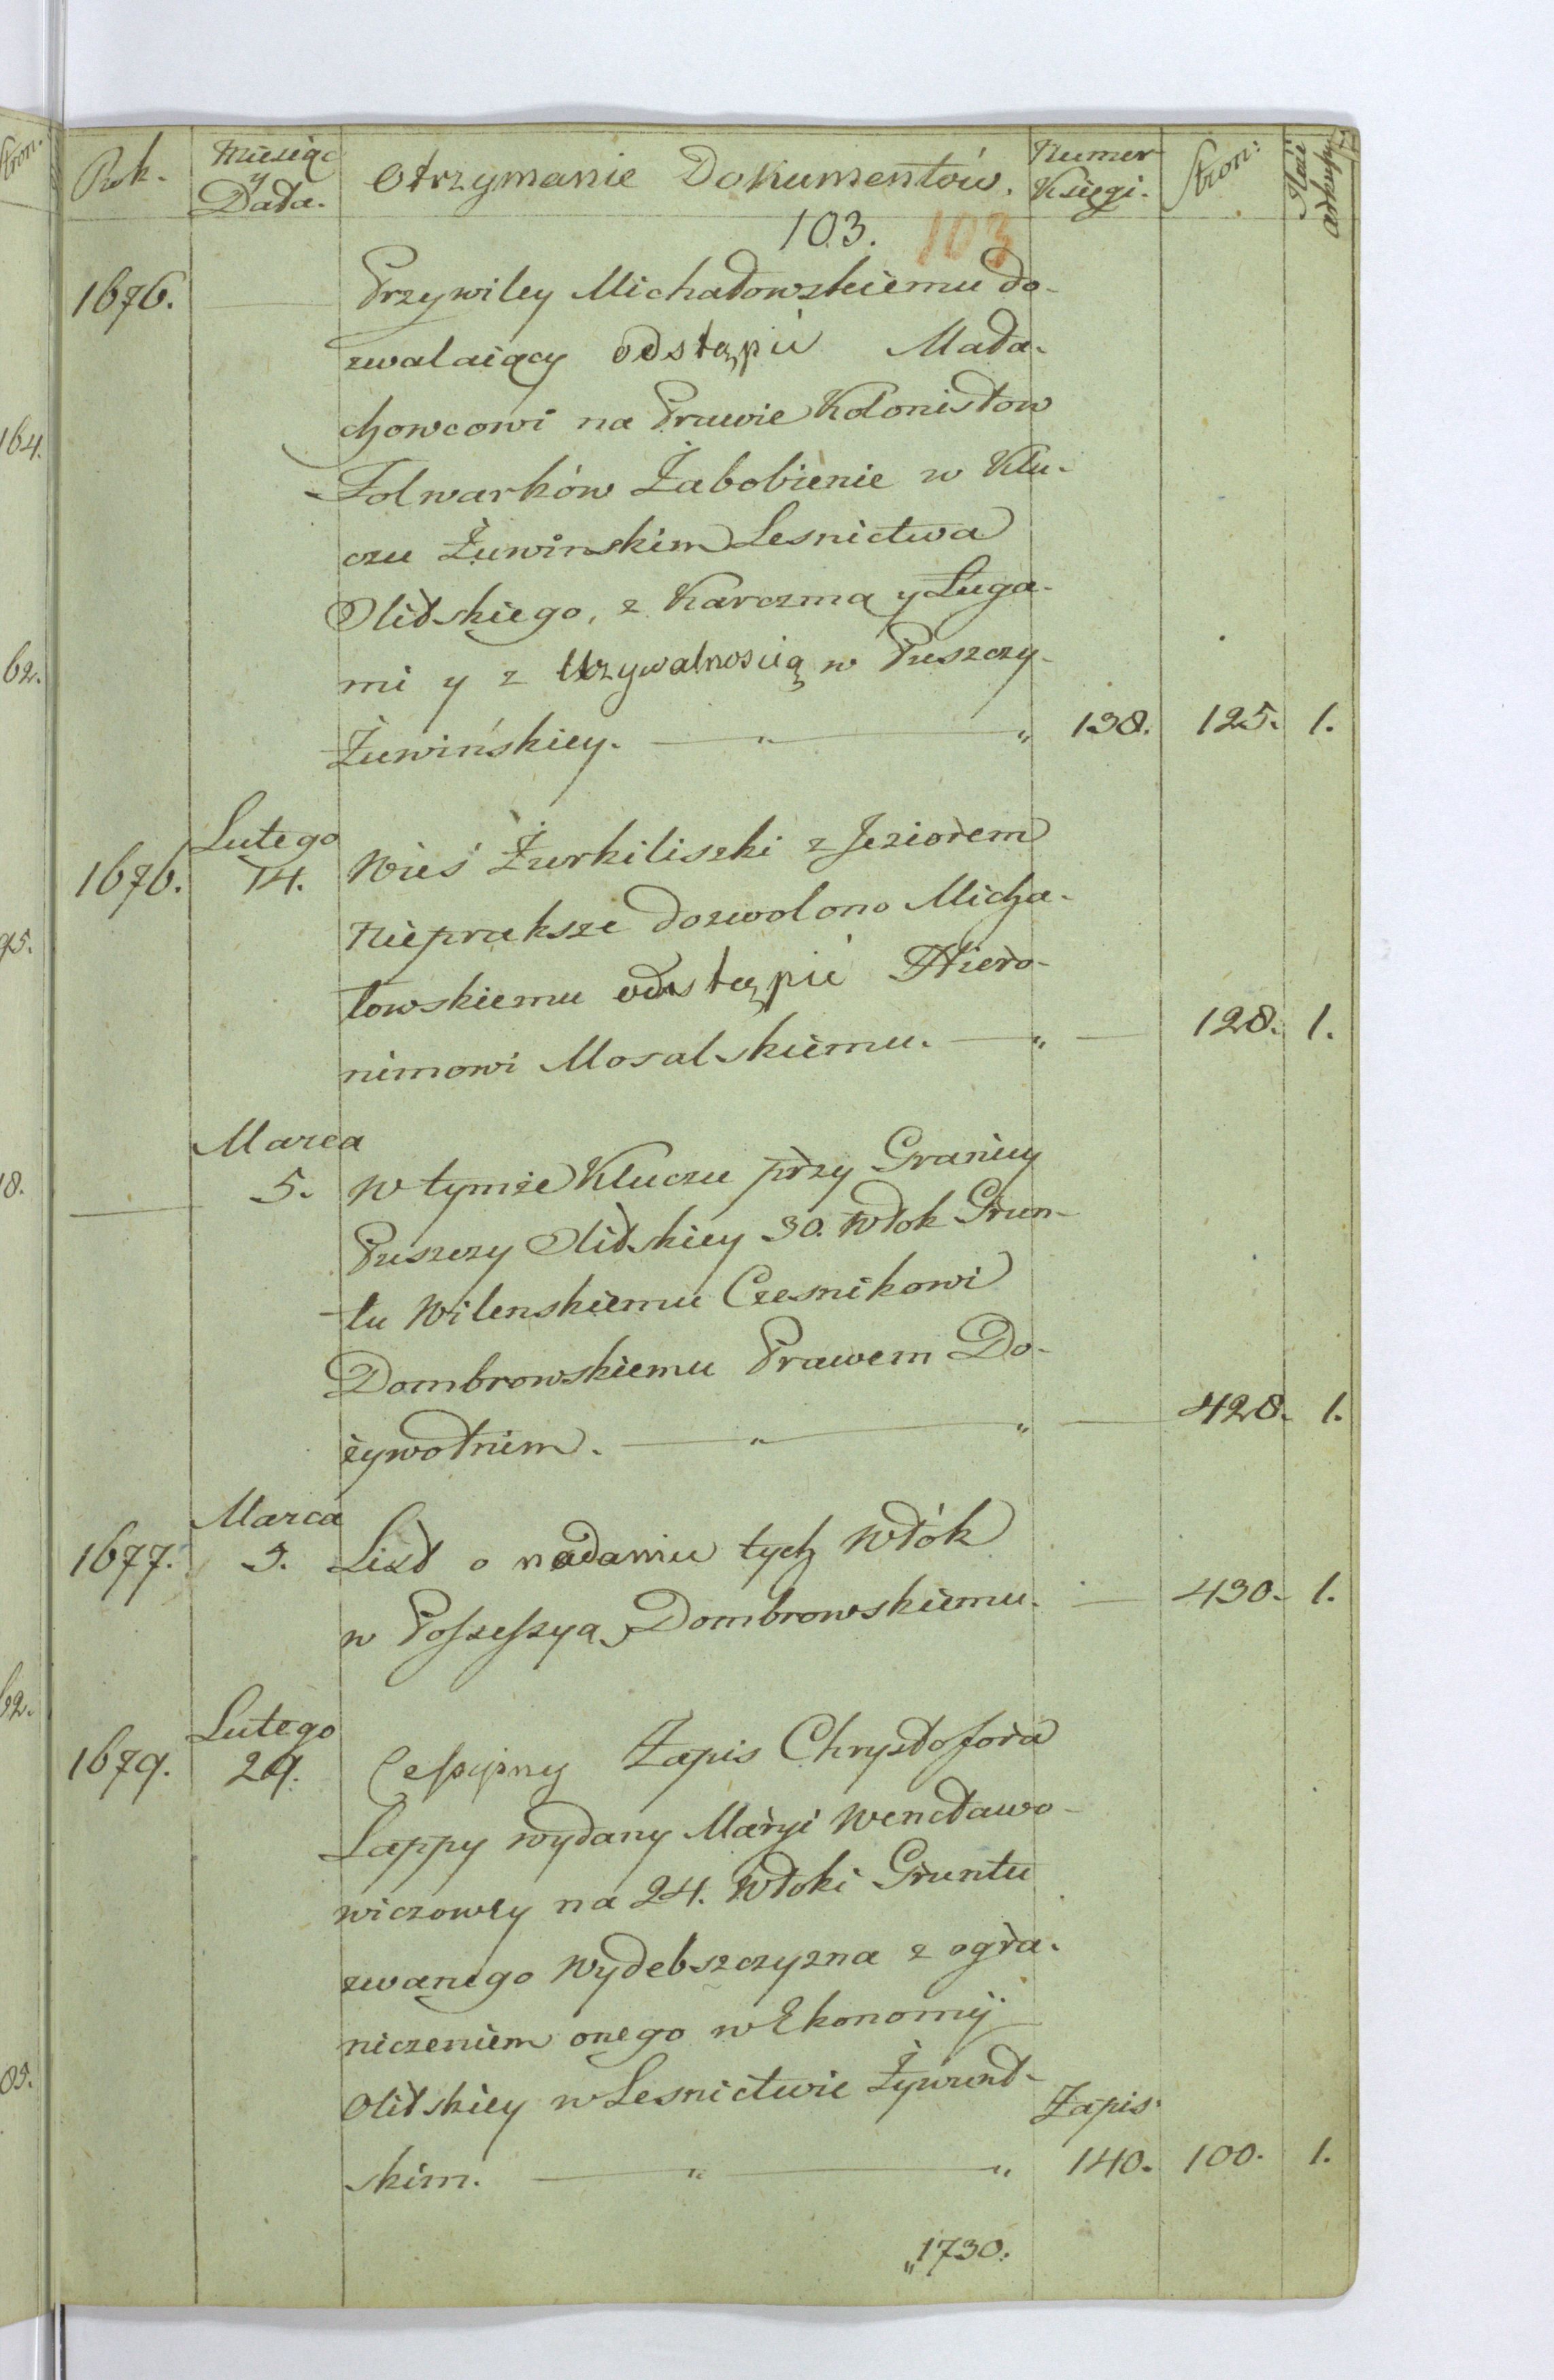 Rok. Miesiąc y Data. Otrzymanie Dokumentów. Numer Księgi. Stron:
103. 103
1676. Przywiley Michałowskiemu do-
zwalaiący odstąpić Mała-
chowcowi na Prawie Kolonistow
Folwarków Żabobienie w Klu-
czu Żuwinskim Lesnictwa
Olitskiego, z Karczmą y Ługa-
mi y z Używalnoscią w Puszczy
Żuwińskiey. — „ — „ 138. 125. 1.
Lutego
1676. 14. Wieś Żurkiliszki z Jeziorem
Niepraksze dozwolono Micha-
łowskiemu odstąpić Hiero-
nimowi Mosalskiemu. — „ — 128. 1.
Marca
— 5. W tymże Kluczu przy Granicy
Puszczy Olitskiey 30. Włok Grun-
tu Wilenskiemu Czesnikowi
Dombrowskiemu Prawem Do-
żywotnim. — „ — „ — 428. 1.
Marca
1677. 3. List o nadaniu tych Włók
w Possessyą Dombrowskiemu. — 430. 1.
Lutego
1679. 29. Cessyjny Zapis Chrystofora
Łappy wydany Maryi Wencławo-
wiczowey na 24. Włoki Gruntu
zwanego Wydebszczyzna z ogra-
niczeniem onego w Ekonomij
Olitskiey w Lesnictwie Żywund-
Zapis
skim. — „ — „ 140. 100. 1.
„1730.
164.
62.
95.
18.
62.
05.